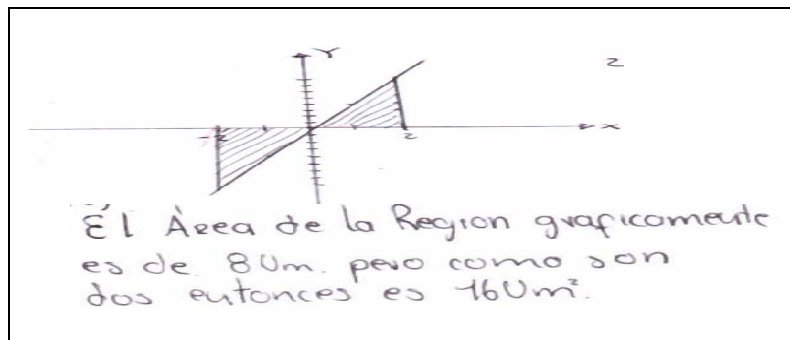 Y
2
-2
2
x
Él Área de la Region graficamente
es de 8 Um. pero como son
dos entonces es 16 Um².